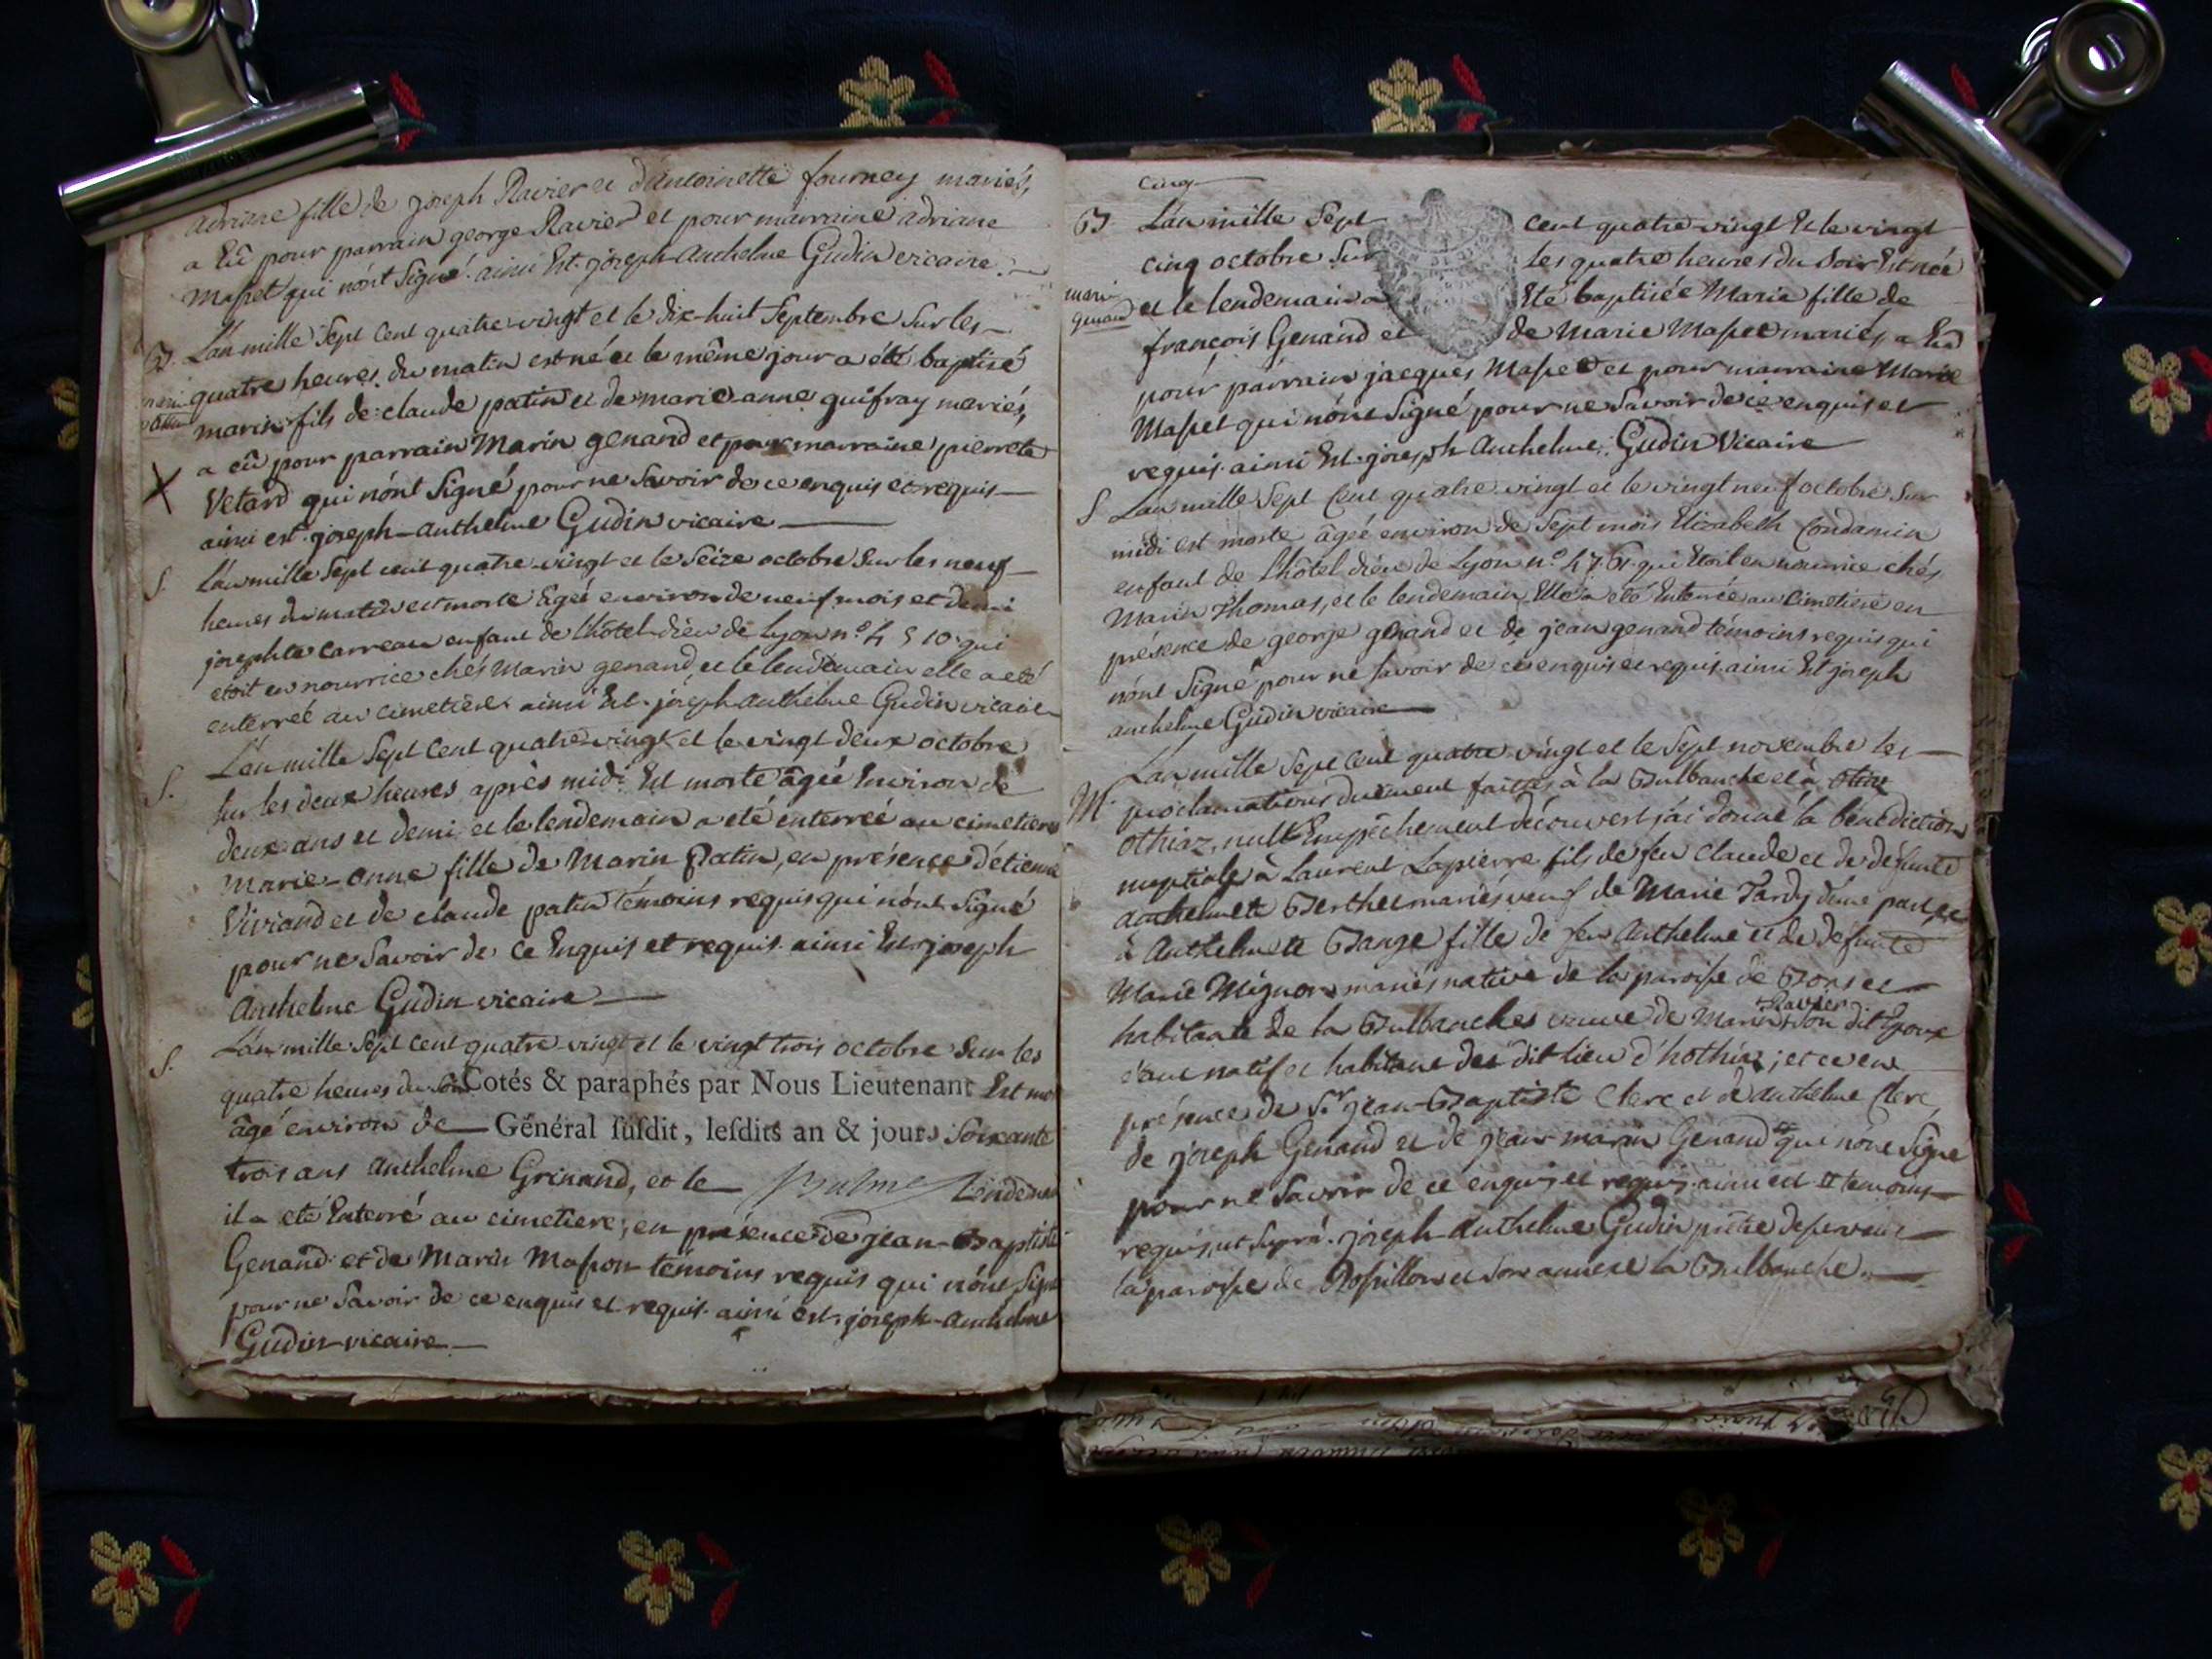 adriane fille de joseph Ravier et d'antoinette fourney mariés,
a Eû pour parrain george Ravier et pour marraine adriane
Masset qui n'ont Signé. ainsi Est. joseph-anthelme Gudin vicaire.
B. L'an mille Sept cent quatre-vingt et le dix-huit Septembre Sur les
quatre heures du matin est né et le même jour a été baptisé
marin fils de claude patin et de marie-anne guifray mariés,
a eû pour parrain Marin genand et pour marraine pierrete
X
Vetard qui n'ont Signé pour ne Savoir de ce enquis et requis
ainsi est. joseph-anthelme Gudin vicaire
S. L'an mille Sept cent quatre-vingt et le Seize octobre Sur les neuf
heures du matin est morte âgée environ de neuf mois et demi
josephte carreau enfant de l'hôtel-dieu de lyon n.o 4510. qui
etoit en nourrice chés Marin genand, et le lendemain elle a eté
enterreé au cimetiere. ainsi Est. joseph anthelme Gudin vicaire
S. L'an mille Sept cent quatre-vingt et le vingt deux octobre
Sur les deux heures après midi Est morte âgée Environ de
deux ans et demi et le lendemain a eté enterreé au cimetiere
Marie-anne fille de Marin Patin, en présence d'étienne
Viviand et de claude patin témoins requis qui n'ont Signé
pour ne Savoir de Ce Enquis et requis. ainsi Est. joseph
Anthelme Gudin vicaire
S. L'an mille Sept cent quatre vingt et le vingt trois octobre Sur les
quatre heures du Soir Cotés & paraphés par Nous Lieutenant Est mort
âgé environ de Général susdit, lesdits an & jour. Soixante
trois ans Anthelme Grinand, et le lendemain
il a eté Enterré au cimetiere, en présence de jean-Baptiste
Genand et de Marin Masson témoins requis qui n'ont Signé
pour ne Savoir de ce enquis et requis. ainsi est. joseph-anthelme
Gudin-vicaire
cinq
B. L'an mille Sept cent quatre-vingt Et le vingt
cinq octobre Sur les quatre heures du Soir Est née
marie
genand
et le lendemain a Eté baptisée Marie fille de
francois Genand et de Marie Masset mariés, a Eu
pour parrain jacques Masset et pour marraine Marie
Masset qui n'ont Signé pour ne Savoir de ce enquis et
requis. ainsi Est. joseph Anthelme Gudin Vicaire
S L'an mille Sept Cent quatre-vingt et le vingt neuf octobre Sur
midi est morte âgée environ de Sept mois Elizabeth Condamin
enfant de L'hôtel dieu de Lyon n.o qui Etoit en nourrice chés
Marin Thomas, et le lendemain Elle a eté Enterrée au Cimetiere en
présence de george genand et de jean genand témoins requis qui
n'ont Signé pour ne Savoir de ce enquis et requis. ainsi Est joseph
anthelme Gudin vicaire
M. L'an mille Sept Cent quatre-vingt et le Sept novembre les
proclamations duement faittes à la Bulbanche et à
othiaz, null Empêchement découvert j'ai donné la bénédiction
nuptiale à Laurent Lapierre fils de feu Claude et de défunte
anthelmete Berthet mariés veuf de Marie Tardy d'une part, et
à Anthelmete Bange fille de feu Anthelme et de défunte
Marie Mignon mariés native de la paroisse de Bons et
habitante de la Bulbanche veuve de Marin Ravier Son dit Epoux
étant natif et habitant du dit lieu d'hothiaz; et ce en
présence de S.r jean-Baptiste Clerc et d'anthelme Clerc,
de joseph Genand et de jean marin Genand qui n'ont Signé
pour ne Savoir de ce enquis et requis. ainsi est et témoins
requis, ut Suprà. joseph-anthelme Gudin prêtre desservant
la paroisse de Rossillon et Son annexe la Bulbanche.